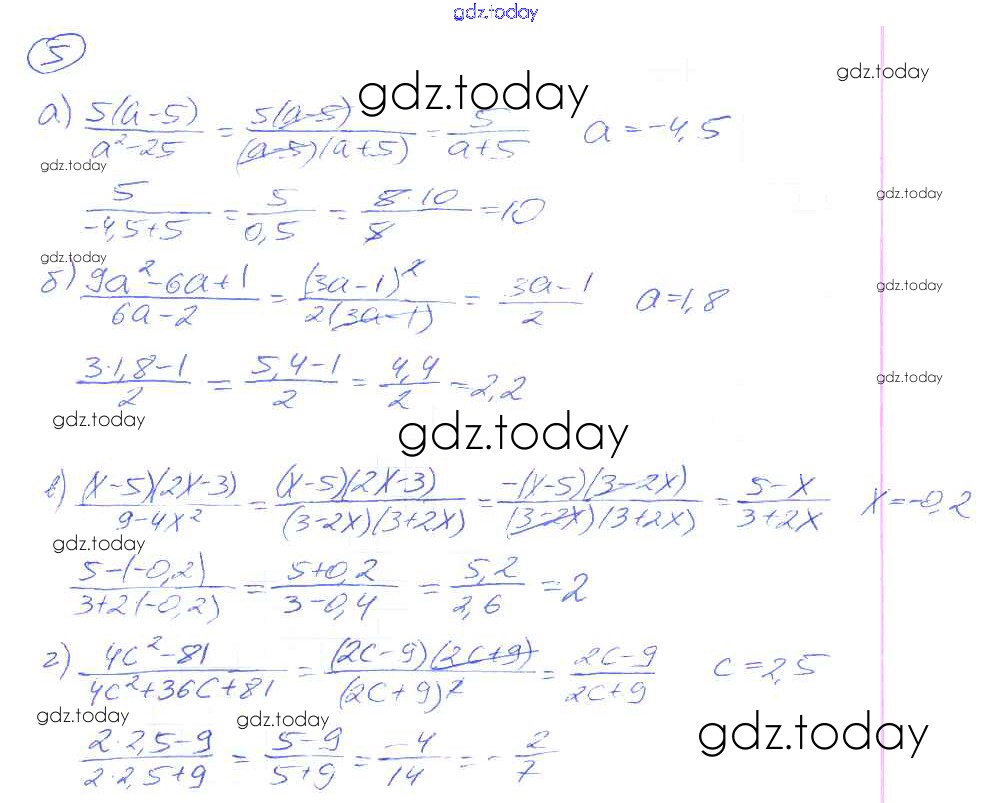 gdz.today
5
gdz.today
gdz.today
а) 5(a-5)/a²-25 = 5(a-5)/(a-5)(a+5) = 5/a+5 a=-4,5
gdz.today
5/-4,5+5 = 5/0,5 = 5·10/5 =10
gdz.today
gdz.today
б) 9a²-6a+1/6a-2 = (3a-1)²/2(3a-1) = 3a-1/2 a=1,8
gdz.today
3·1,8-1/2 = 5,4-1/2 = 4,4/2 =2,2
gdz.today
gdz.today
gdz.today
в) (x-5)(2x-3)/9-4x² = (x-5)(2x-3)/(3-2x)(3+2x) = -(x-5)(3-2x)/(3-2x)(3+2x) = 5-x/3+2x x=-0,2
gdz.today
5-(-0,2)/3+2(-0,2) = 5+0,2/3-0,4 = 5,2/2,6 =2
г) 4c²-81/4c²+36c+81 = (2c-9)(2c+9)/(2c+9)² = 2c-9/2c+9 c=2,5
gdz.today
gdz.today
gdz.today
2·2,5-9/2·2,5+9 = 5-9/5+9 = -4/14 = -2/7